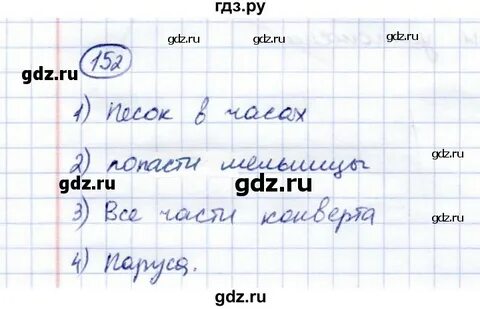 гдз.ру
gdz.ru gdz.ru
152
gdz.ru
1) Песок в часах
gdz.ru gdz.ru
2) лопасти мельницы
gdz.ru
3) Все части конверта
gdz.ru gdz.ru
4) Паруса.
gdz.ru
gdz.ru